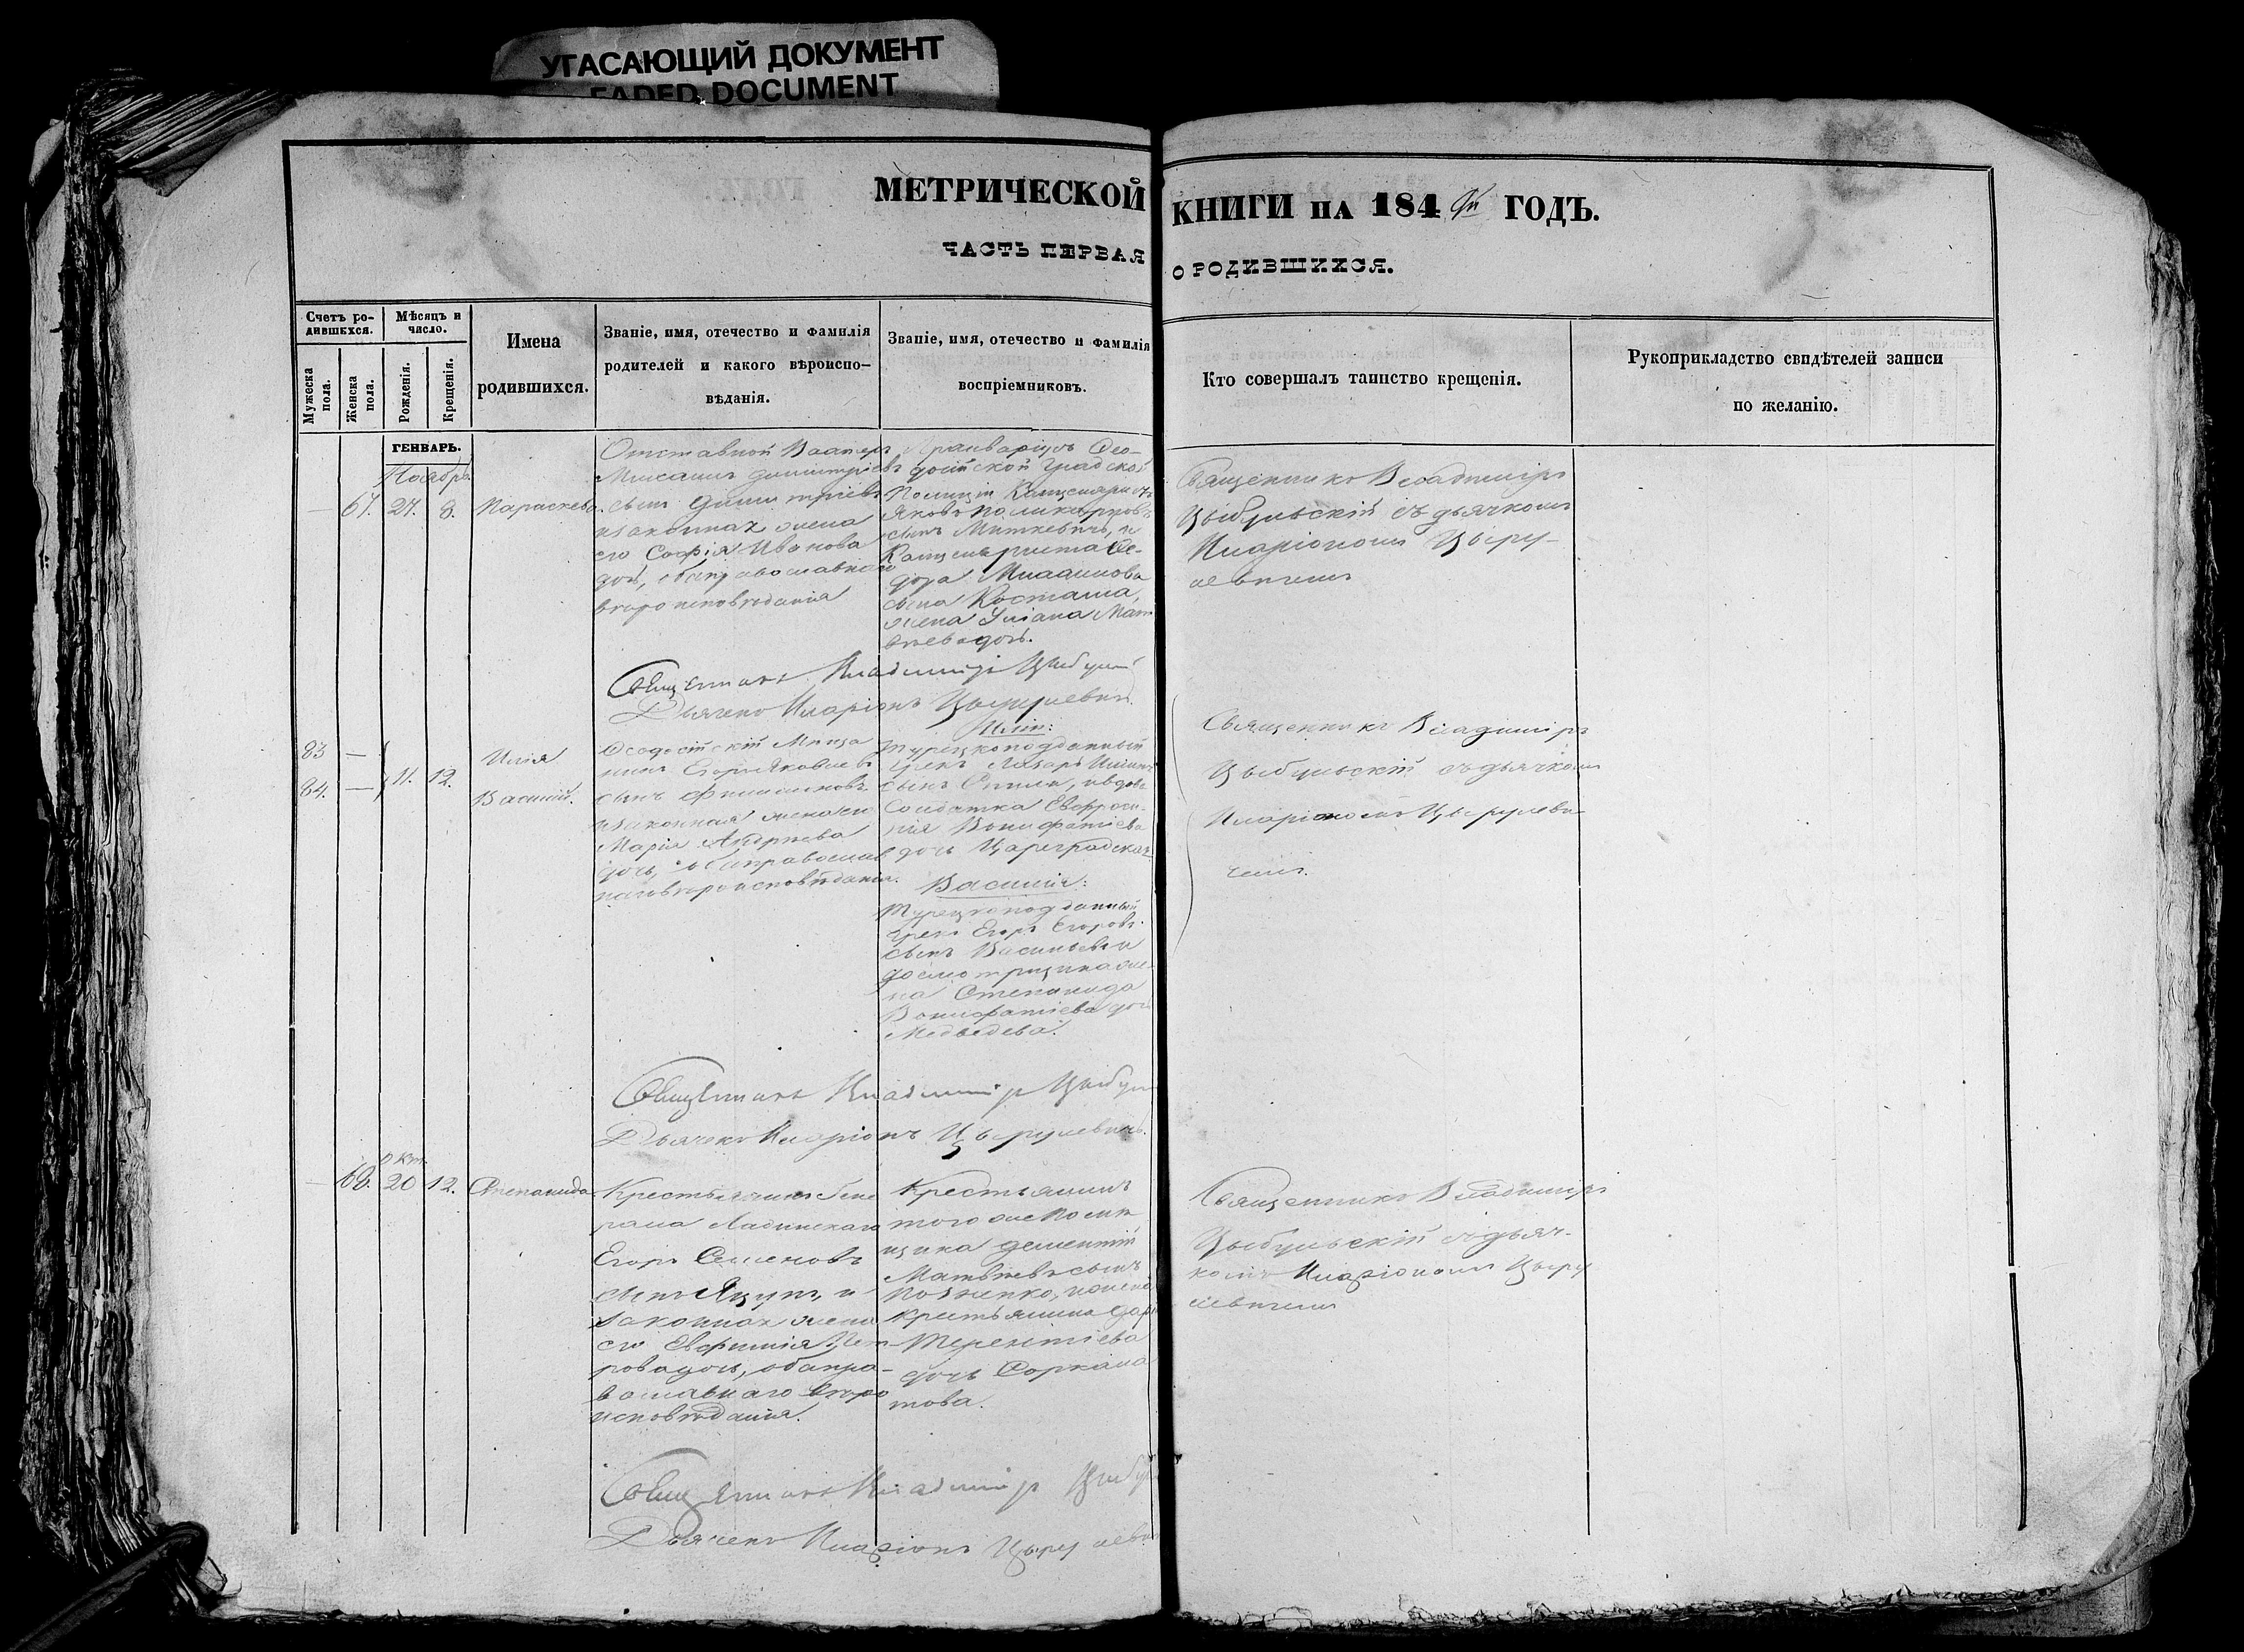 УГАСАЮЩИЙ ДОКУМЕНТ
FADED DOCUMENT
МЕТРИЧЕСКОЙ КНИГИ НА 184 ГОДЪ.
ЧАСТЬ ПЕРВАЯ О РОДИВШИХСЯ.
Счетъ ро-
дившихся.
Мужеска
пола.
Женска
пола.
Мѣсяцъ и
число.
Рожденія.
Крещенія.
Имена
родившихся.
Званіе, имя, отечество и фамилія
родителей и какого вѣроиспо-
вѣданія.
Званіе, имя, отечество и фамилія
воспріемниковъ.
Кто совершалъ таинство крещенія.
Рукоприкладство свидѣтелей записи
по желанію.
ГЕНВАРЬ.
Ноябрь
— 67. 27. 8. Параскева.
Отставной
Димитріевъ
сынъ
и законная жена
его Софія Иванова
дочь, оба православнаго
вѣроисповѣданія
Ѳео-
досійской Градской
Полиціи Канцеляристъ
Яковъ Поликарповъ
сынъ Миткевичъ, и
Канцеляриста Ѳе-
дора
сына Косташа,
жена Уліана Мат
вѣева дочь.
Священникъ Владиміръ
Цыбульскій съ дьячкомъ
Иларіономъ Цыру-
левичемъ
Священникъ Владиміръ Цыбульс
Дьячекъ Иларіонъ Цырулевичъ.
83 —
84. —
11. 12.
Илія
Василій.
Ѳеодосійскій Мѣща
нинъ Егоръ Яковлевъ
сынъ
и законная жена его
Марія Андреева
дочь, оба православ
наго вѣроисповѣданія.
Иліи:
Турецкоподданный
Грекъ Лазарь
сынъ и вдова
Солдатка Евфроси-
нія Вонифатіева
дочь Цареградская
Василія:
Турецкоподданный
Грекъ Егоръ Егоровъ
сынъ Васильевъ и
досмотрщика же-
на Степанида
Вонифатіева дочь
Медведева.
Священникъ Владиміръ
Цыбульскій съ дьячкомъ
Иларіономъ Цырулеви-
чемъ.
Священникъ Владиміръ Цыбул
Дьячекъ Иларіонъ Цырулевичъ.
Окт.
— 68. 20 12. Степанида
Крестьянинъ Гене
рала Ладинскаго
Егоръ Семеновъ
сынъ Яцунъ, и
законная жена
его Евфимія Пет-
рова дочь, оба пра-
вославнаго вѣро
исповѣданія.
Крестьянинъ
того же Помѣ
щика Дементій
Матвѣевъ сынъ
и жена
крестьянина Дар
Терентіева
дочь
това.
Священникъ Владиміръ
Цыбульскій съ дьяч-
комъ Иларіономъ Цыру
левичемъ
Священникъ Владиміръ Цыбу
Дьячекъ Иларіонъ Цырулевич